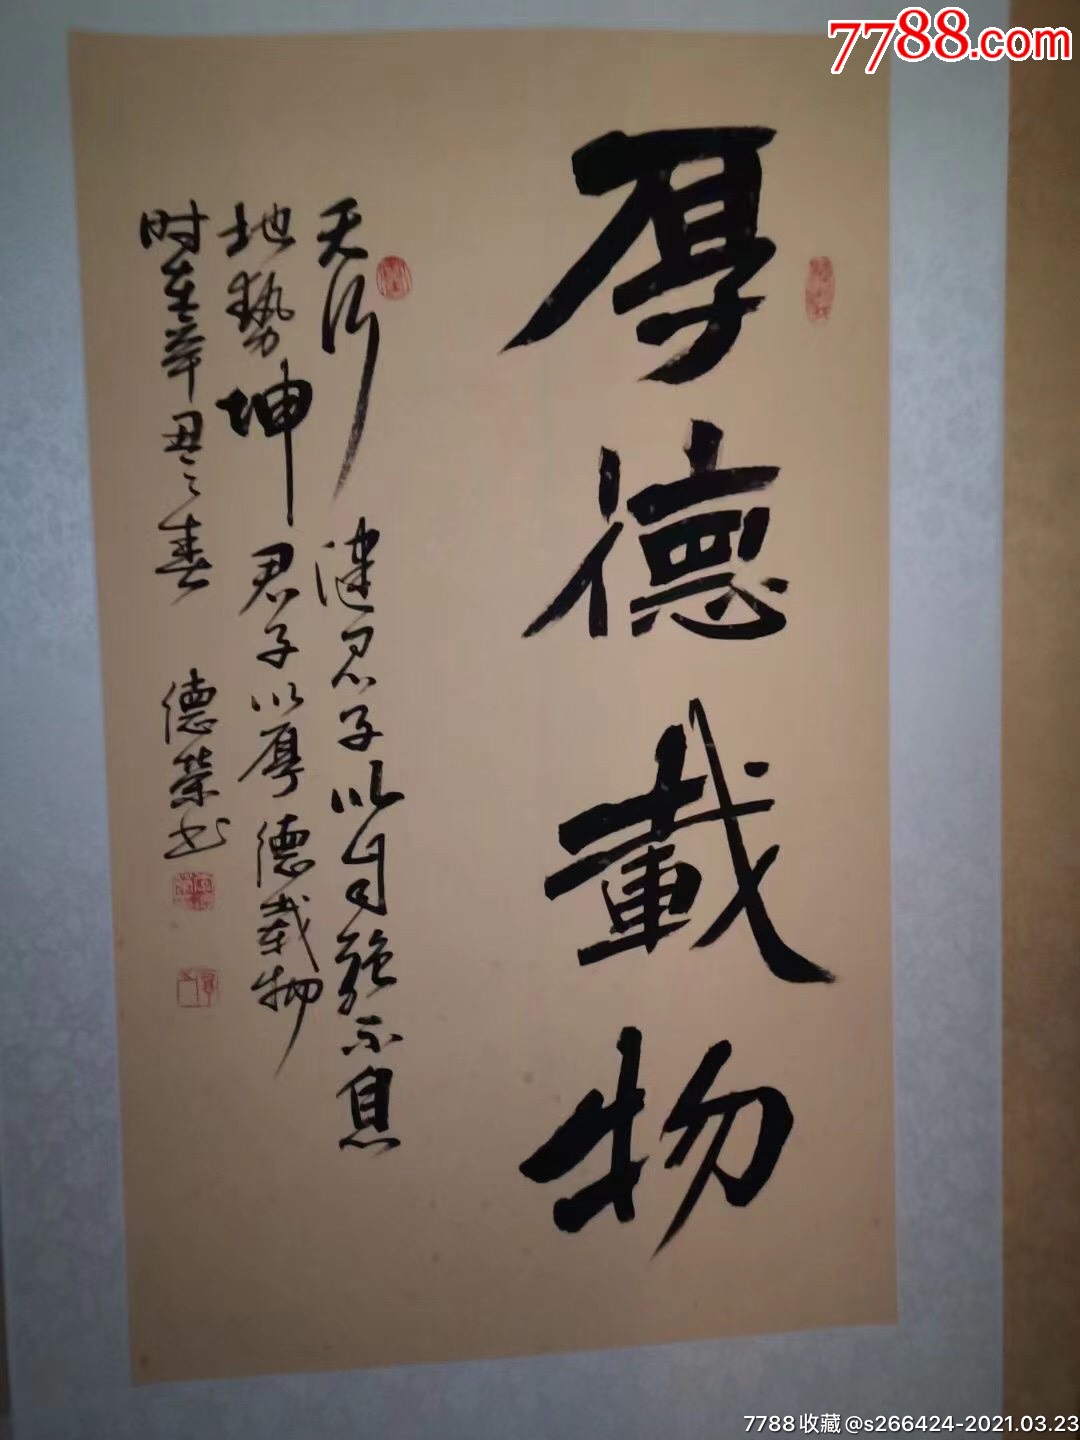 7788.com
厚德載物
天行健君子以自强不息
地勢坤君子以厚德载物
时在辛丑之春 德荣书
7788收藏@s266424-2021.03.23